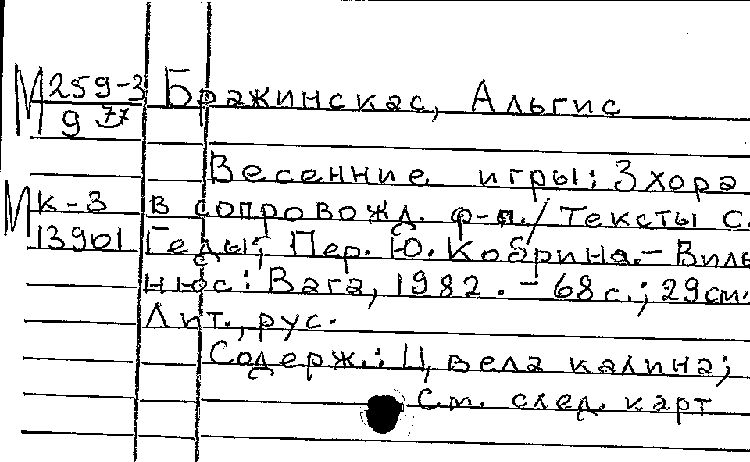 М 259-3 Бражинскас, Альгис
9 77
Весенние игры: 3 хора
М К-3 в сопровожд. ф-п. / Тексты С.
13901 Геды; Пер. Ю. Кобрина. - Виль
нюс: Вага, 1982. - 68 с.; 29 см.
Лит., рус.
Содерж.: Цвела калина;
См. след. карт